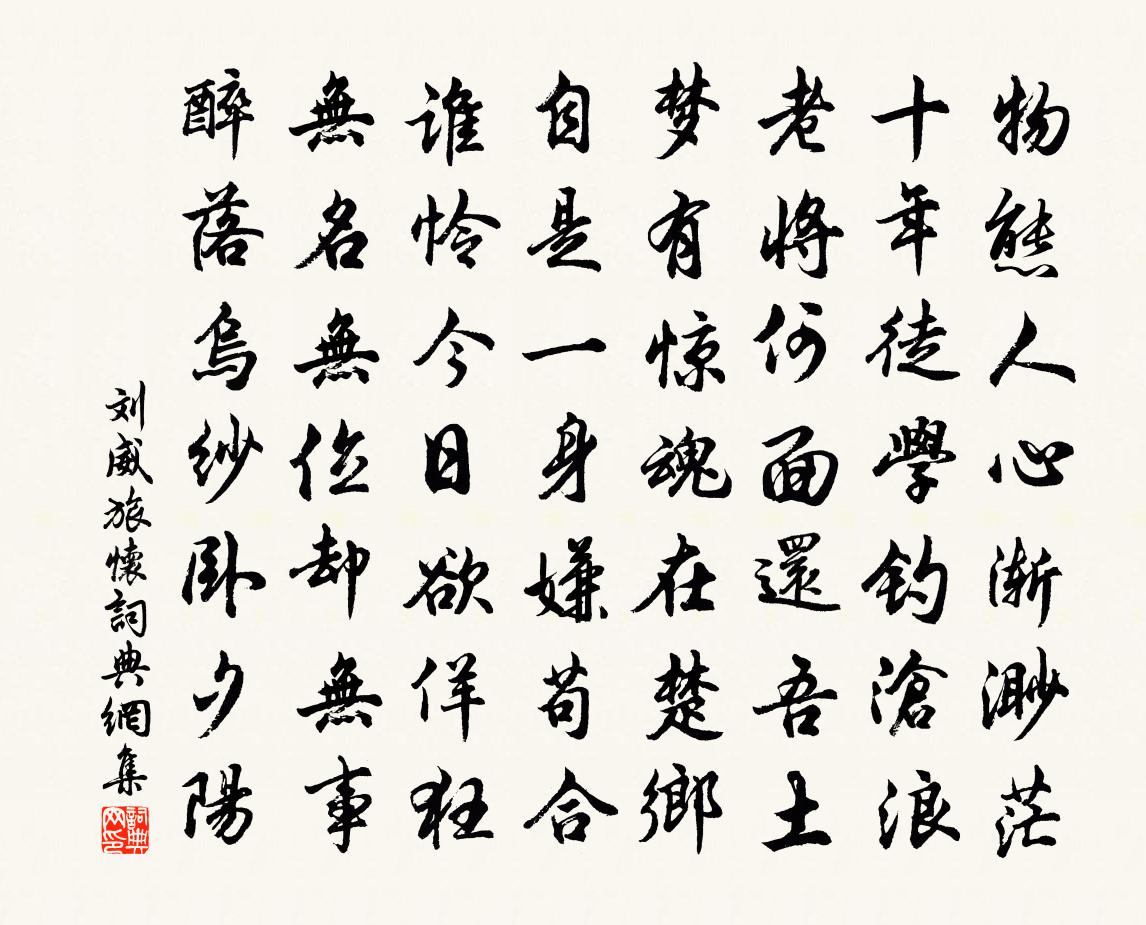 物態人心漸渺茫
十年徒學釣滄浪
老將何面還吾土
梦有惊魂在楚鄉
自是一身嫌苟合
誰怜今日欲佯狂
無名無位却無事
醉落烏紗卧夕陽
刘威旅懷詞典網集
詞典网印